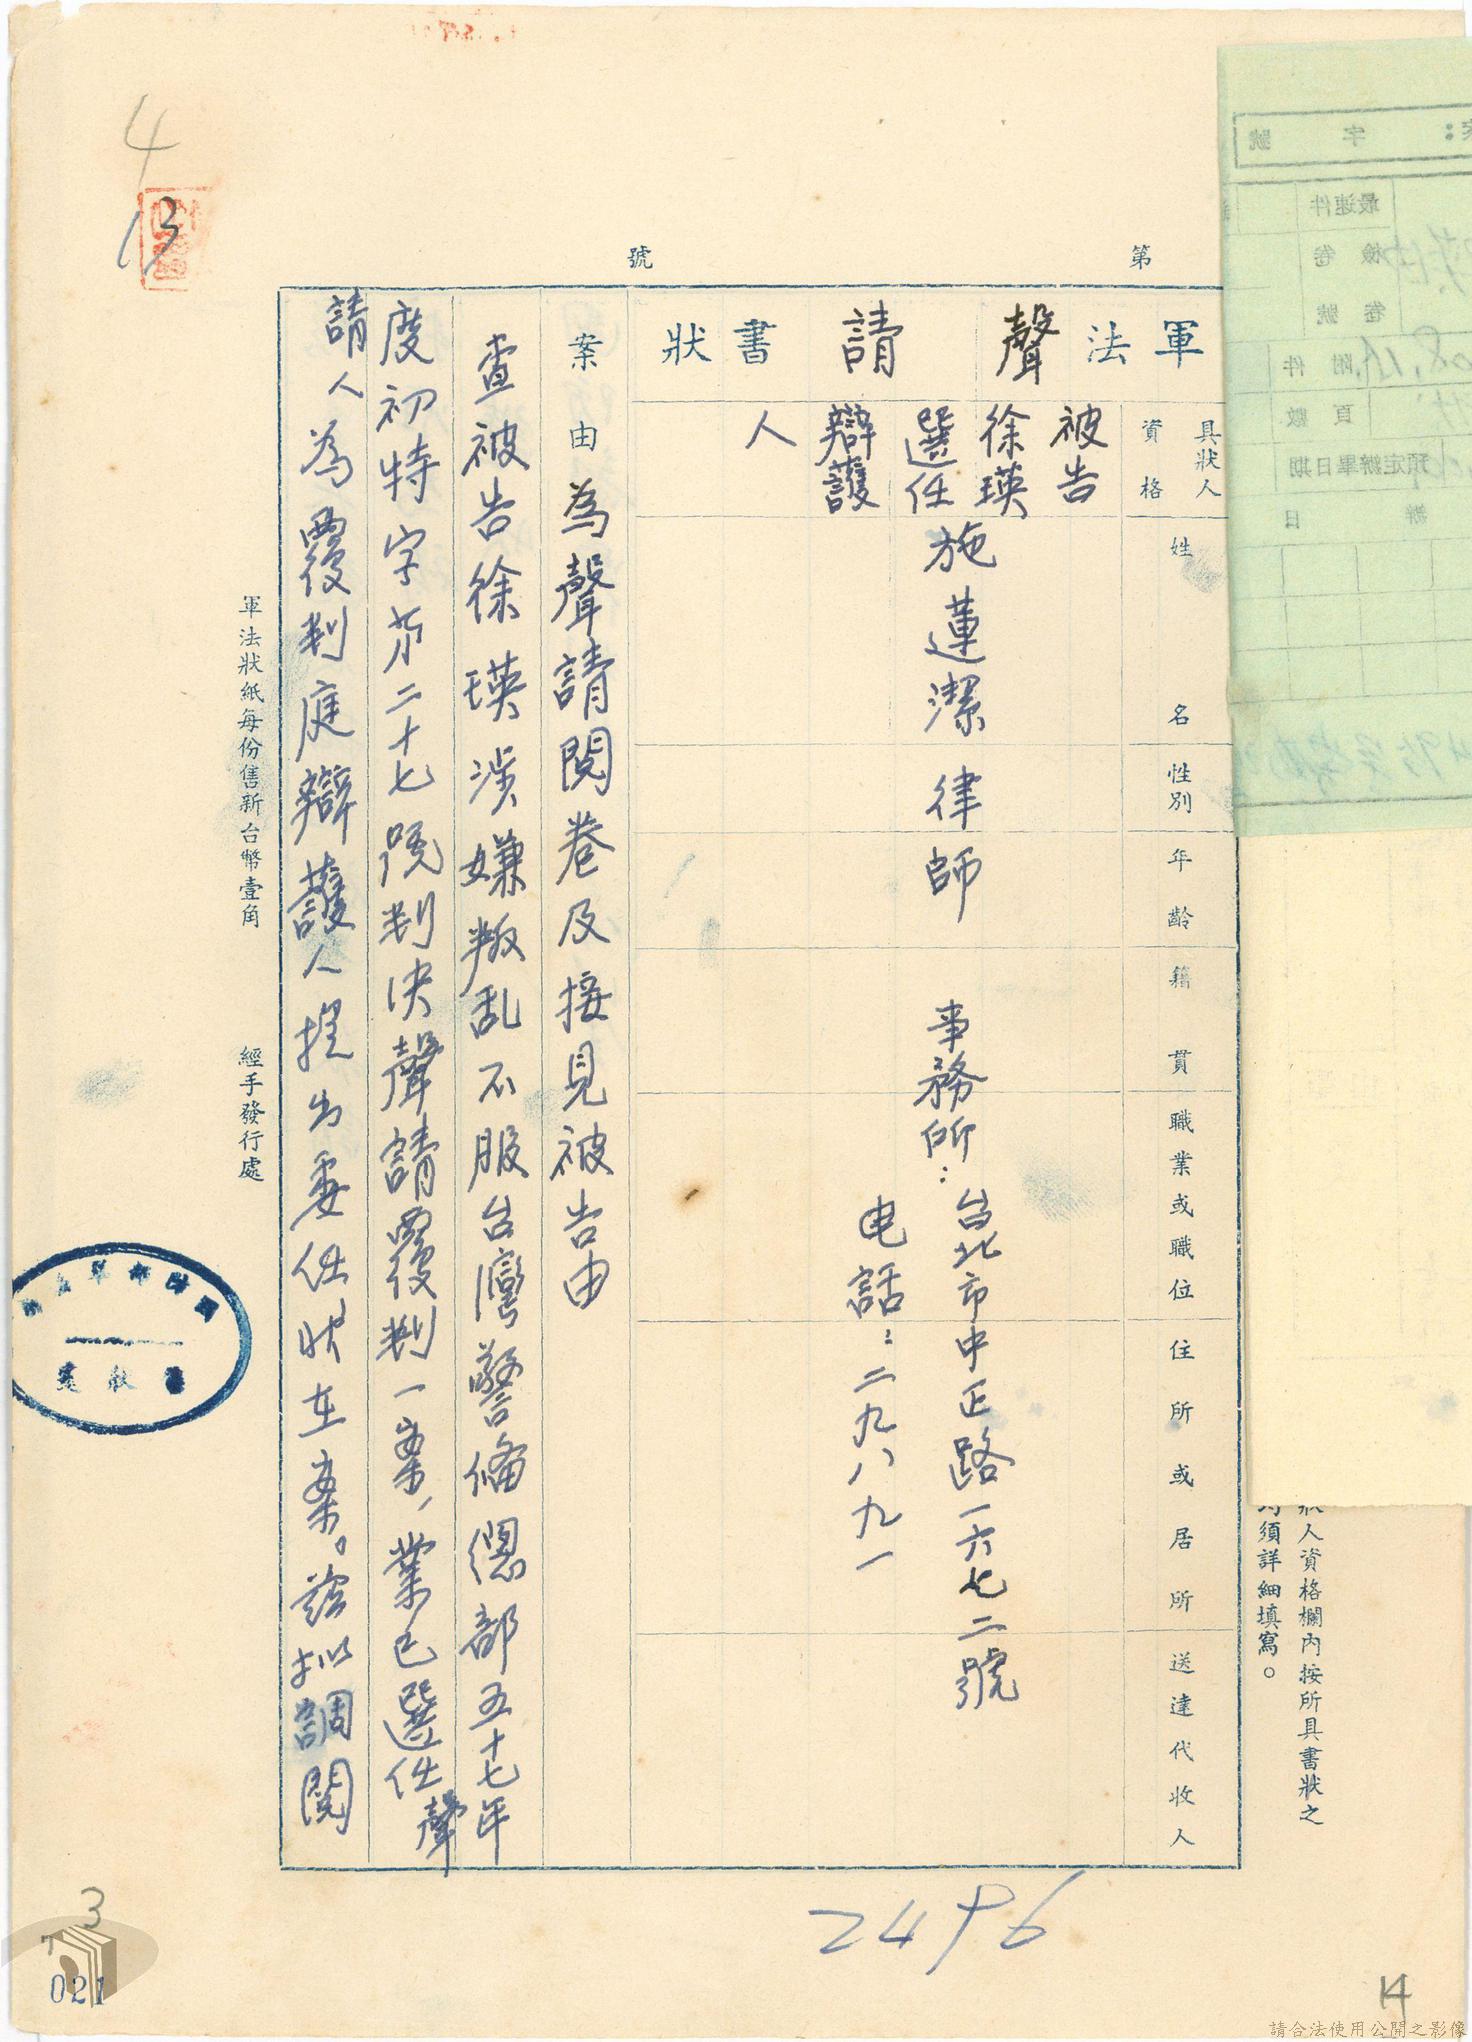 第
號
軍法聲請書狀
具狀人
資格
姓名
性別
年齡
籍貫
職業或職位
住所或居所
送達代收人
被告
徐瑛
選任
辯護
人
施蓮潔律師
事務所：台北市中正路一六七二號
电話：二九八九一
案由
為聲請閱卷及接見被告由
查被告徐瑛涉嫌叛乱不服台灣警備總部五十七年
度初特字第二十七號判決聲請覆判一案，業已選任聲
請人為覆判庭辯護人提出委任狀在案。茲擬調閱
狀人資格欄內按所具書狀之
須詳細填寫。
軍法狀紙每份售新台幣壹角
經手發行處
字
號
最速件
檢卷
卷號
附件
頁數
預定辦畢日期
辦
日
4
13
2496
3
7
021
14
請合法使用公開之影像